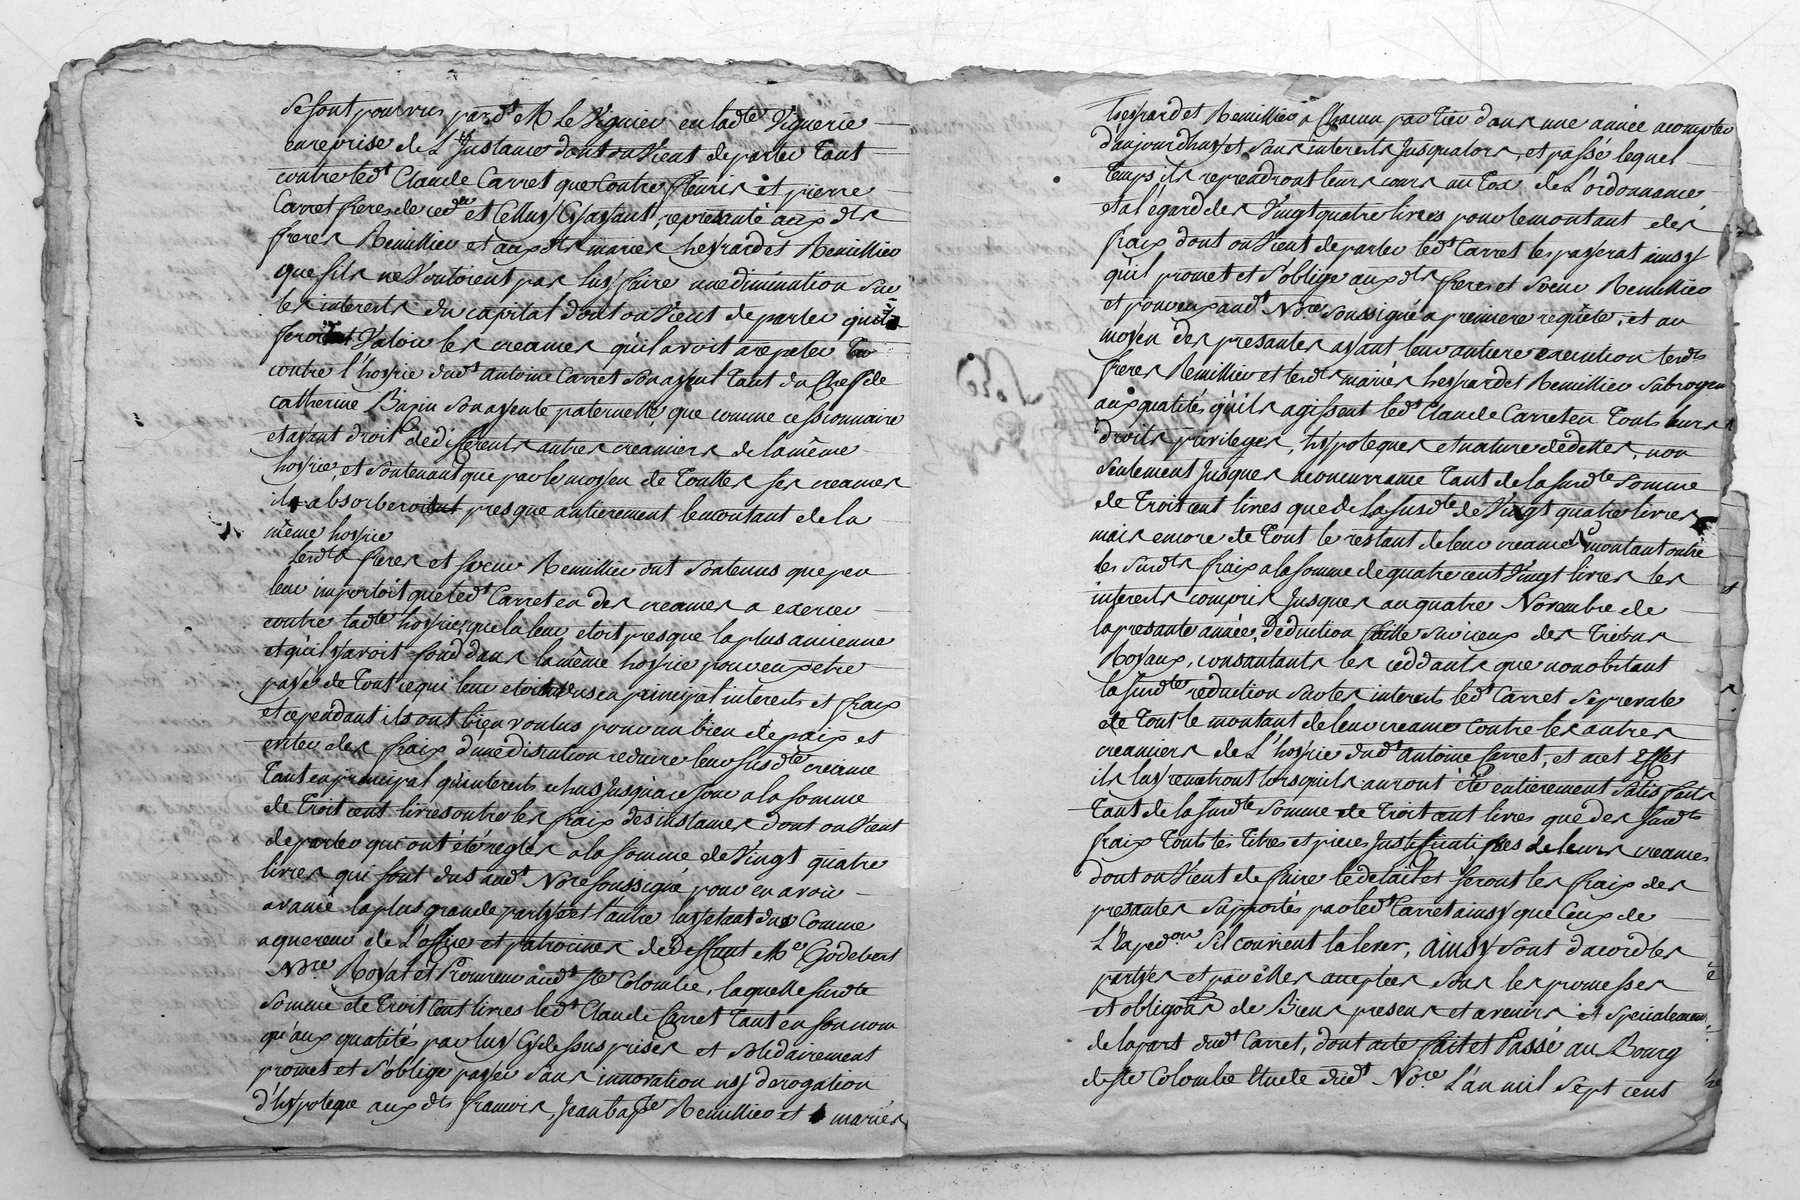 se sont pourvus pard.t M.e Le Viguier en lad.te Viguerie
en reprise de L'Instance dont on Vient de parler Tant
contre led.t Claude Carret que Contre fleuris et pierre
Carret freres de ced.er et Celluy Cy ayant representé aux d.ts
freres Remillieu et aux d.ts mariés hespard et Remillieu
que s'ils ne Vouloient pas luy faire une diminution sur
les interets du capital dont on Vient de parler qu'il
feroit Valoir les creances qu'il avoit a repeter
contre l'hoyrie dud.t antoine Carret son ayeul Tant du Chef de
catherine Bazin son ayeule paternelle que comme cessionnaire
et ayant droit de differents autres creanciers de la même
hoyrie, et soutenant que par le moyen de Touttes ses creances
il absorberoit presque antierement le montant de la
même hoyrie
Lesd.ts freres et soeur Remillieu ont soutenus que peu
leur importoit que led.t Carret eu des creances a exercer
contre lad.te hoyrie, que la leur etoit presque la plus ancienne
et qu'il y avoit fond dans la même hoyrie pour eux etre
payé de Tout ce qui leur etoit dus en principal interets et fraix
et cependant ils ont bien voulus pour un bien de paix et
eviter des fraix d'une discution reduire leur susd.te creance
Tant en principal qu'interets echus jusqu'à ce jour a la somme
de Troit cent livres outre les fraix des instances dont on Vient
de parler qui ont été reglés a la somme de Vingt quatre
livres qui sont dus aud.t No.re soussigné pour en avoir
avancé la plus grande partye et l'autre luy etant due Comme
aquereur de L'office et patrocines de deffunt M.e Godebert
No.re Royal et Procureur aud.t S.te Colombe, laquelle surd.te
somme de Troit Cent livres led.t Claude Carret Tant en son nom
qu'aux qualités par luy Cy dessus prises et solidairement
promet et s'oblige payer sans innovation ny derogation
d'hypoteque aux d.ts francois, Jean bap.te Remillieu et mariés
hespard et Remillieu a Chacun par Tier dans une année a compter
d'aujourdhuy et sans interets Jusqualors, et passé lequel
Temps ils reprendront leurs cours au Tox de L'ordonnance,
et a l'égard des Vingt quatre livres pour le montant des
fraix dont on Vient de parler led.t Carret les payerat ainsy
qu'il promet et s'oblige aux d.ts freres et soeur Remillieu
et pour eux aud.t No.re soussigné a premiere requête, et au
moyen des presantes ayant leur antiere execution lesd.ts
freres Remillieu et lesd.ts mariés hespard et Remillieu subrogent
aux qualités qu'ils agissent led.t Claude Carret en Touts leurs
droits, privileges, hypoteques et nature de dettes, non
seulement Jusques a concurrance Tant de la surd.te somme
de Troit cent livres que de la susd.te de Vingt quatre livres
mais encore de Tout le restant de leur creance montant outre
les surd.ts fraix a la somme de quatre cent Vingt livres les
interets compris Jusques au quatre Novembre de
la presante année, déduction faitte sur iceux des Tributs
Royaux, consantants les ceddants que nonobstant
la surd.te reduction sur les interets led.t Carret se prevale
de Tout le montant de leur creance contre les autres
creanciers de L'hoyrie dud.t antoine Carret, et a cet Effet
ils luy remettront lorsqu'ils auront été entierement satisfaits
Tant de la surd.te somme de Troit cent livres que des surd.ts
fraix Touts les Titres et pieces Justificatifves de leurs creances
dont on Vient de faire le détail et seront les fraix des
presantes supportés par led.t Carret ainsy que Ceux de
L'Exped.on s'il convient la lever, ainsy sont d'acord les
partyes et par elles acceptées sous les promesses
et obligons de Biens presens et avenirs et specialement
de la part dud.t Carret, dont acte fait et Passé au Bourg
de S.te Colombe Etude dud.t No.re L'an mil sept cens